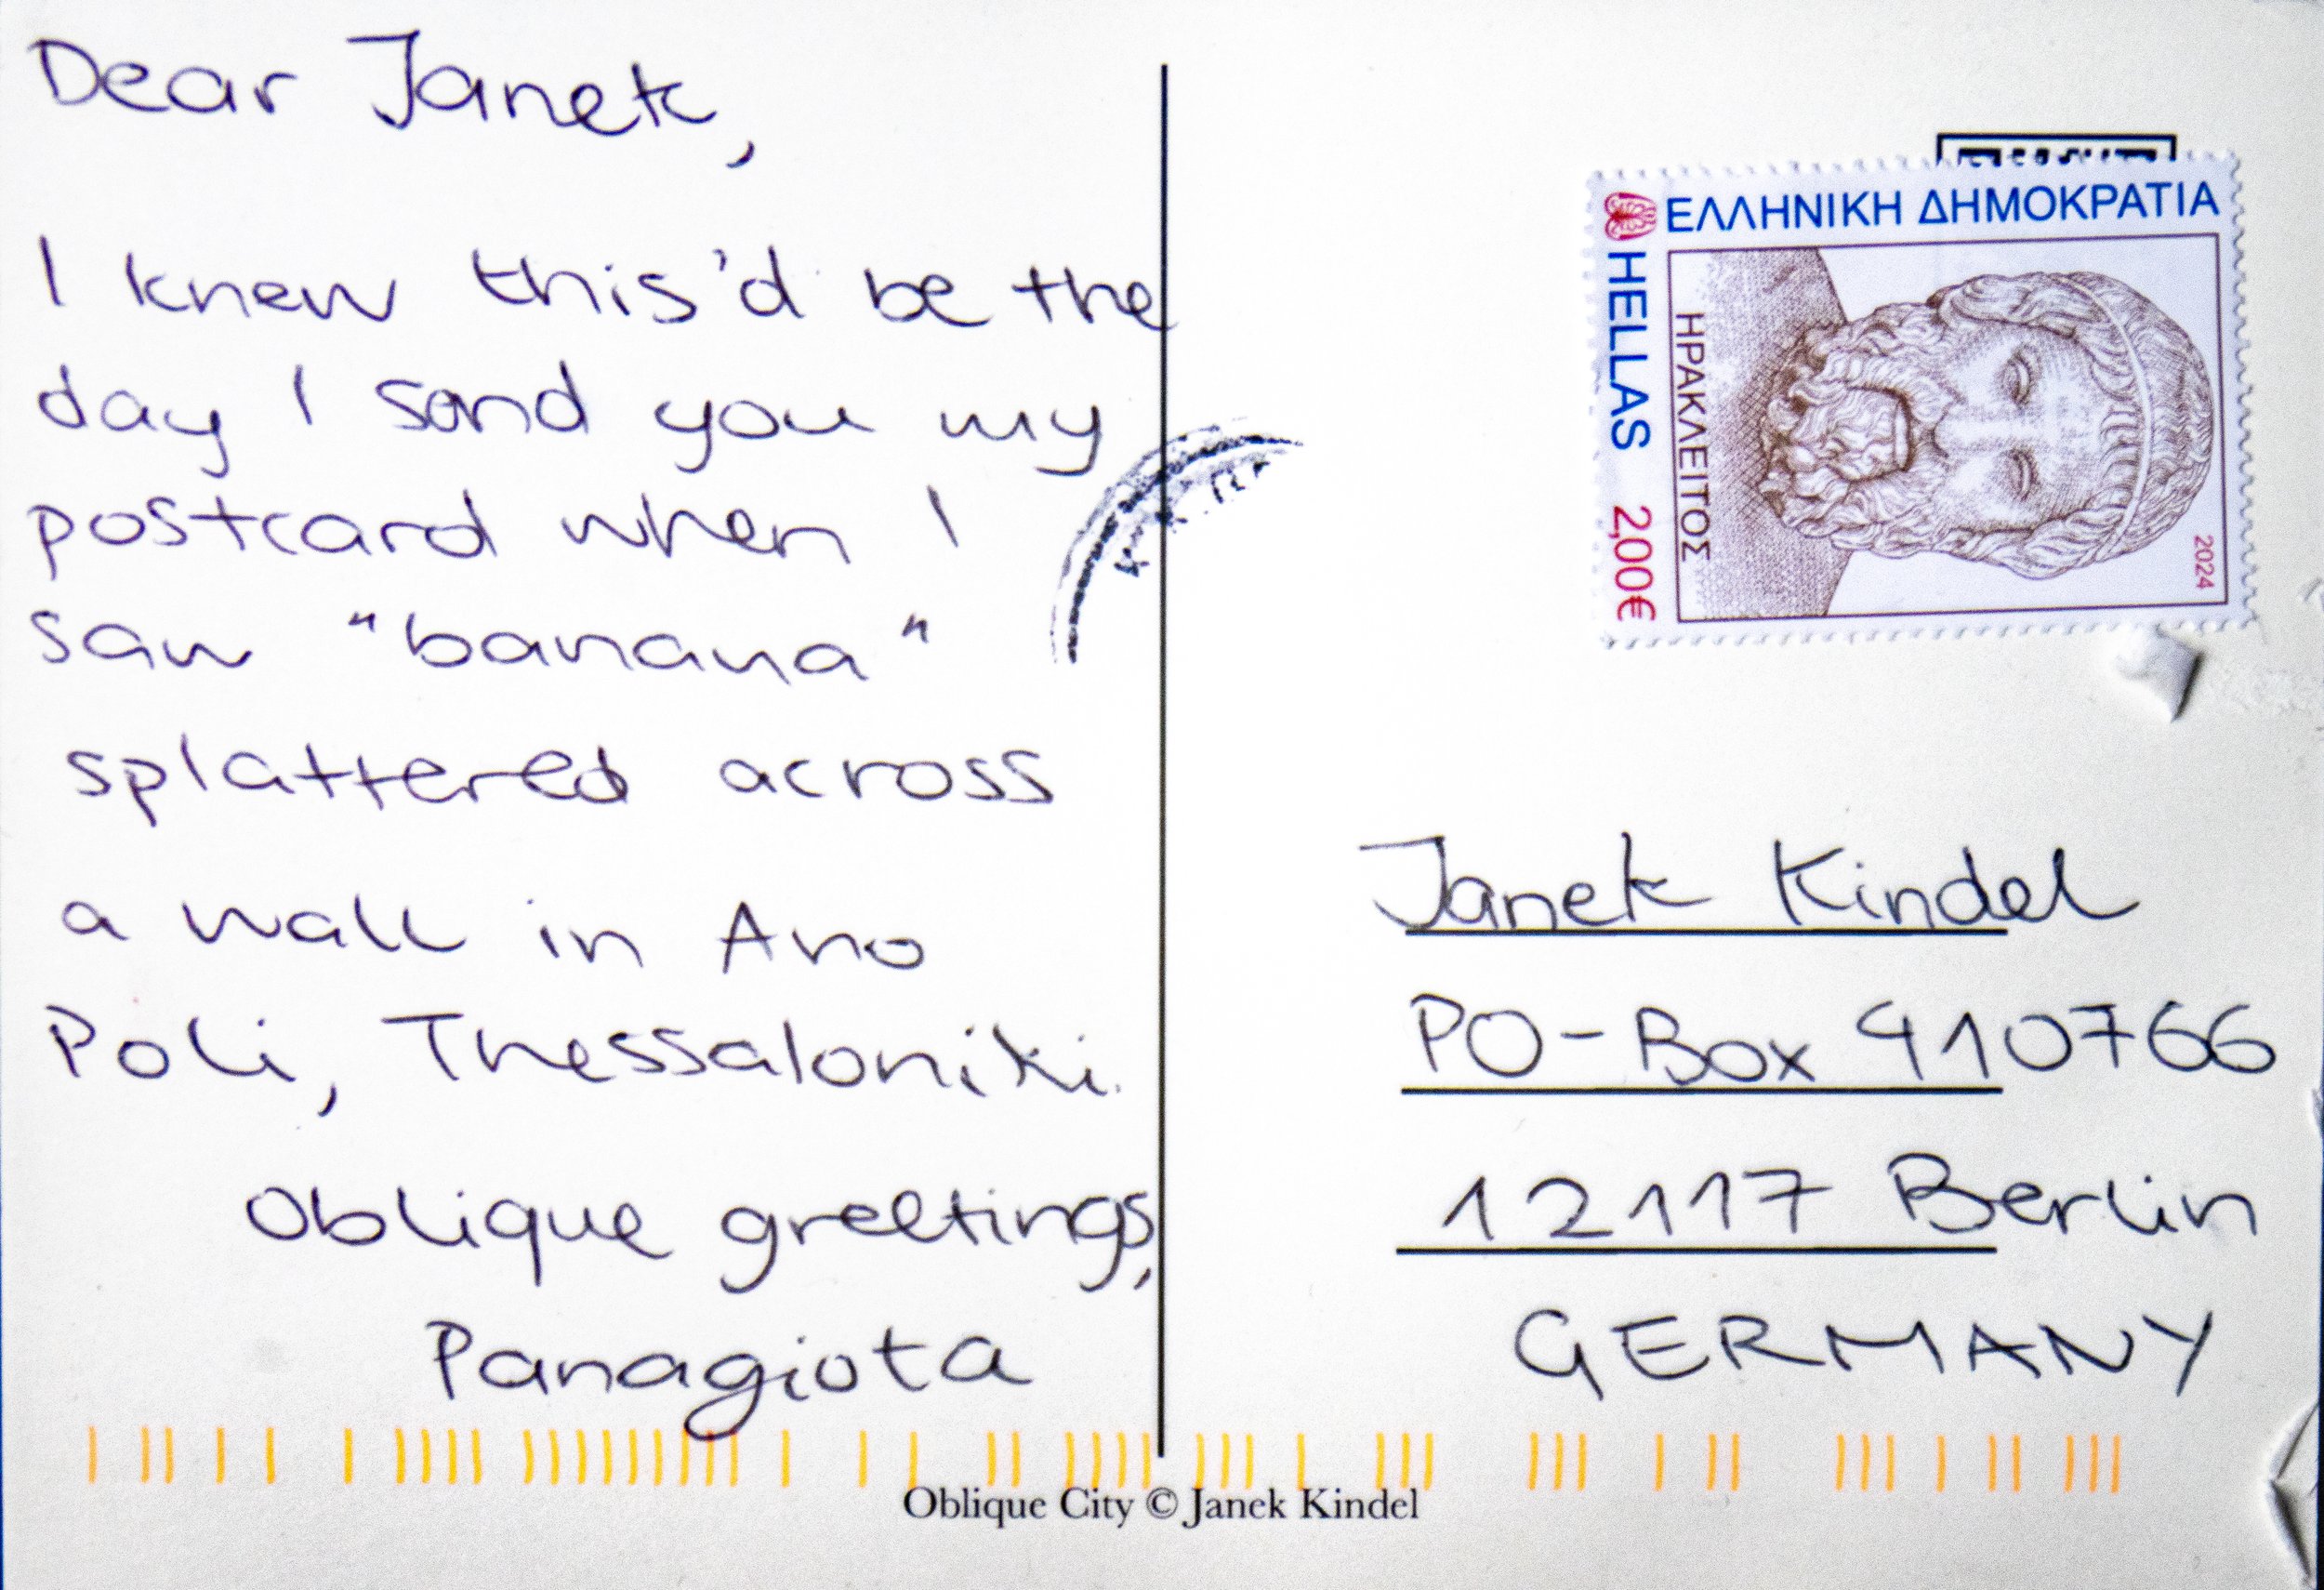 Dear Janek,
I knew this'd be the
day I send you my
postcard when I
saw "banana"
splattered across
a wall in Ano
Poli, Thessaloniki.
Oblique greetings,
Panagiota
ΕΛΛΗΝΙΚΗ ΔΗΜΟΚΡΑΤΙΑ
HELLAS 2,00€
ΗΡΑΚΛΕΙΤΟΣ
2024
Janek Kindel
PO-Box 910766
12117 Berlin
GERMANY
Oblique City © Janek Kindel